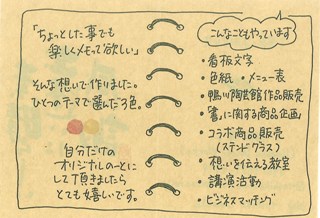 「ちょっとした事でも
楽しくメモって欲しい」
そんな想いで作りました。
ひとつのテーマで選んだ3色。
自分だけの
オリジナルのーとに
して頂きましたら
とても嬉しいです。
こんなこともやっています
・看板文字
・色紙 ・メニュー表
・鴨川陶芸館作品販売
・「書」に関する商品企画
・コラボ商品販売
(ステンドグラス)
・想いを伝える教室
・講演活動
・ビジネスマッチング